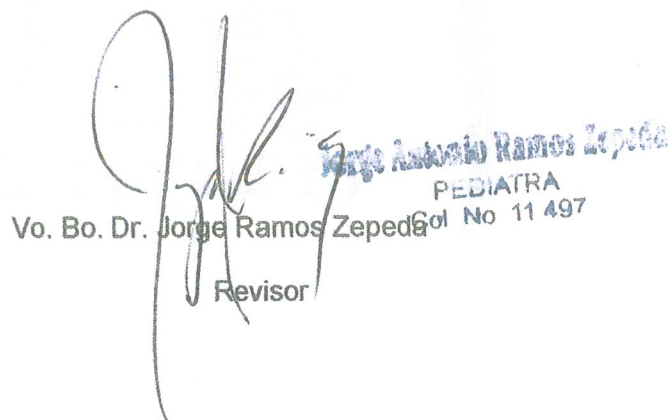 Jorge Antonio Ramos Zepeda
PEDIATRA
Col No 11 497
Vo. Bo. Dr. Jorge Ramos Zepeda
Revisor